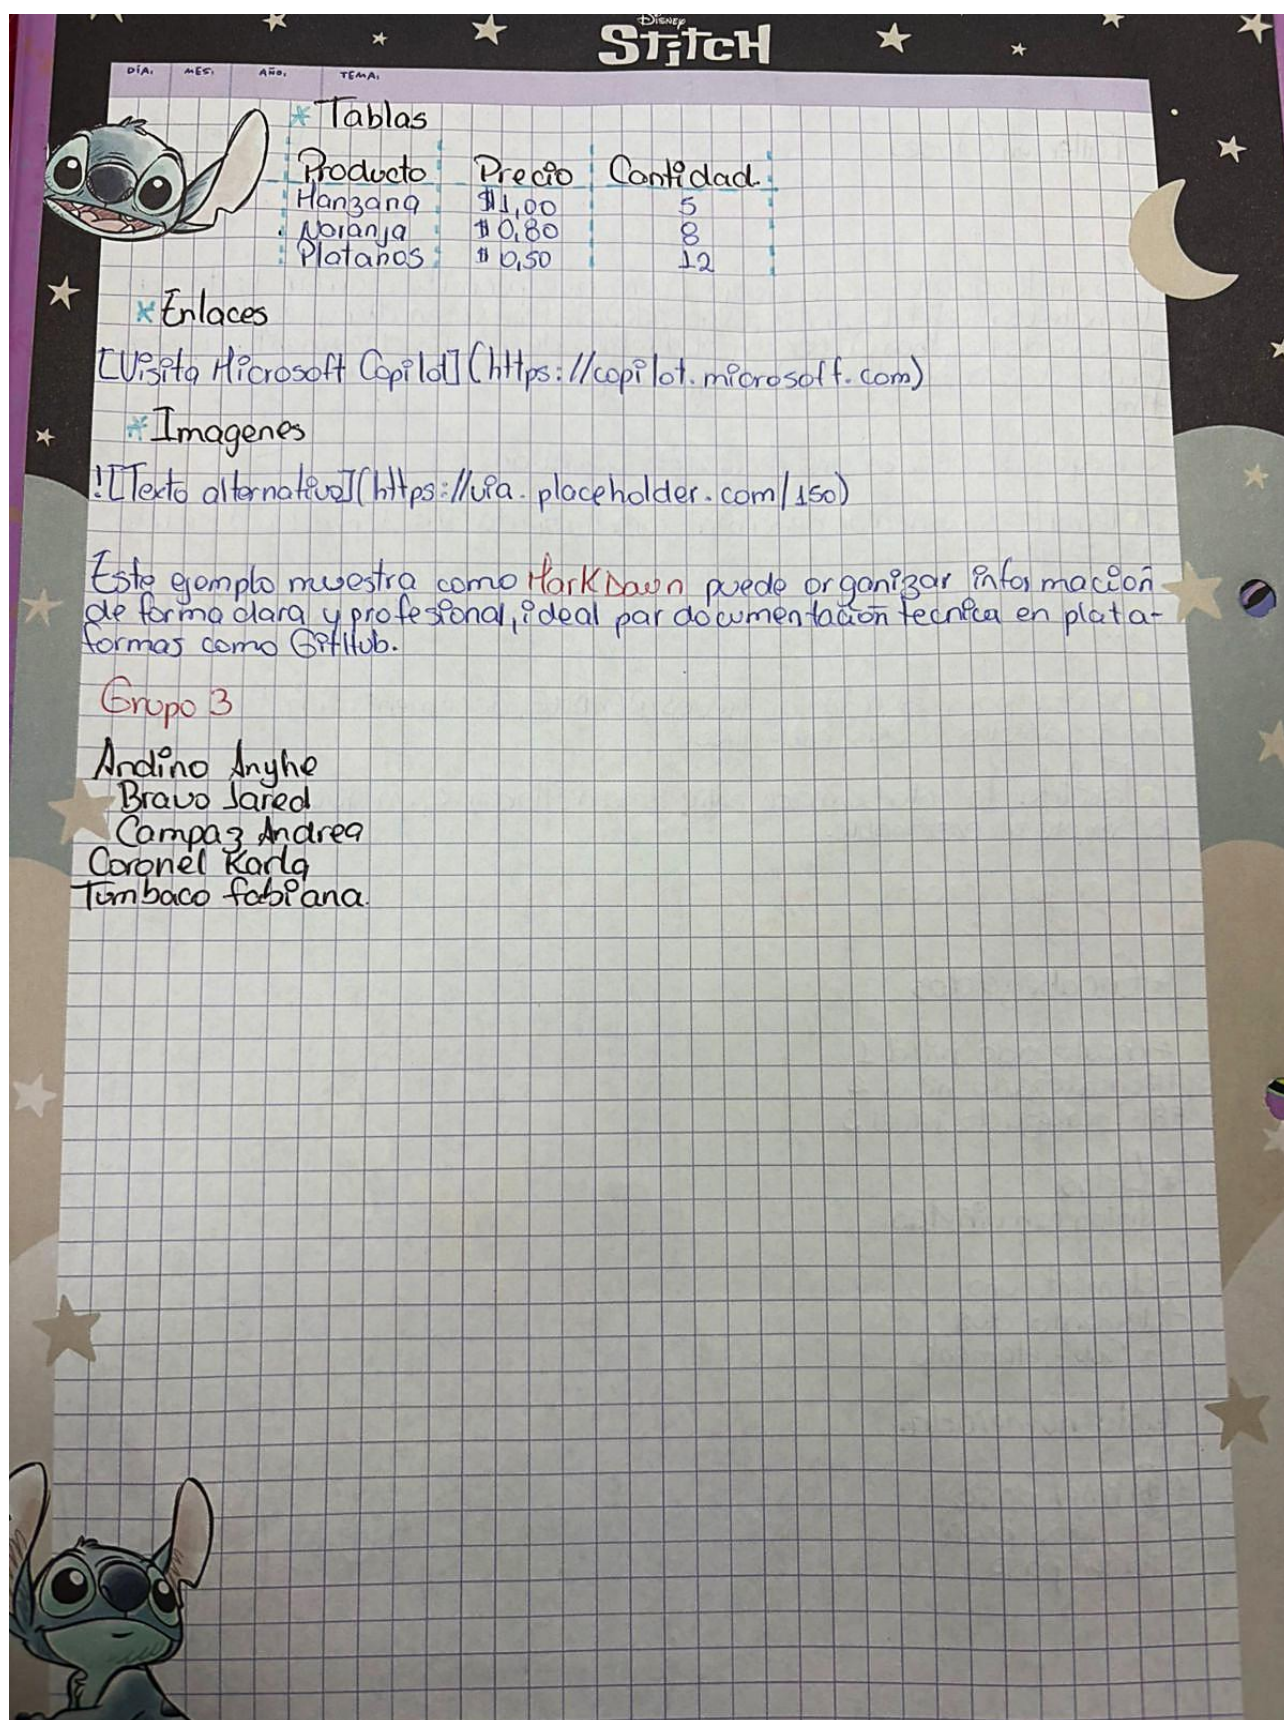 DISNEY
STITCH
DÍA: MES: AÑO: TEMA:
* Tablas
Producto Precio Cantidad
Manzana $1,00 5
Naranja $0,80 8
Platanos $0,50 12
* Enlaces
[Visita Microsoft Copilot](https://copilot.microsoft.com)
* Imagenes
![Texto alternativo](https://via.placeholder.com/150)
Este ejemplo muestra como MarkDown puede organizar información
de forma clara y profesional, ideal par documentación tecnica en plata-
formas como GitHub.
Grupo 3
Andino Anghe
Bravo Jared
Campaz Andrea
Coronel Karla
Tumbaco fabiana.